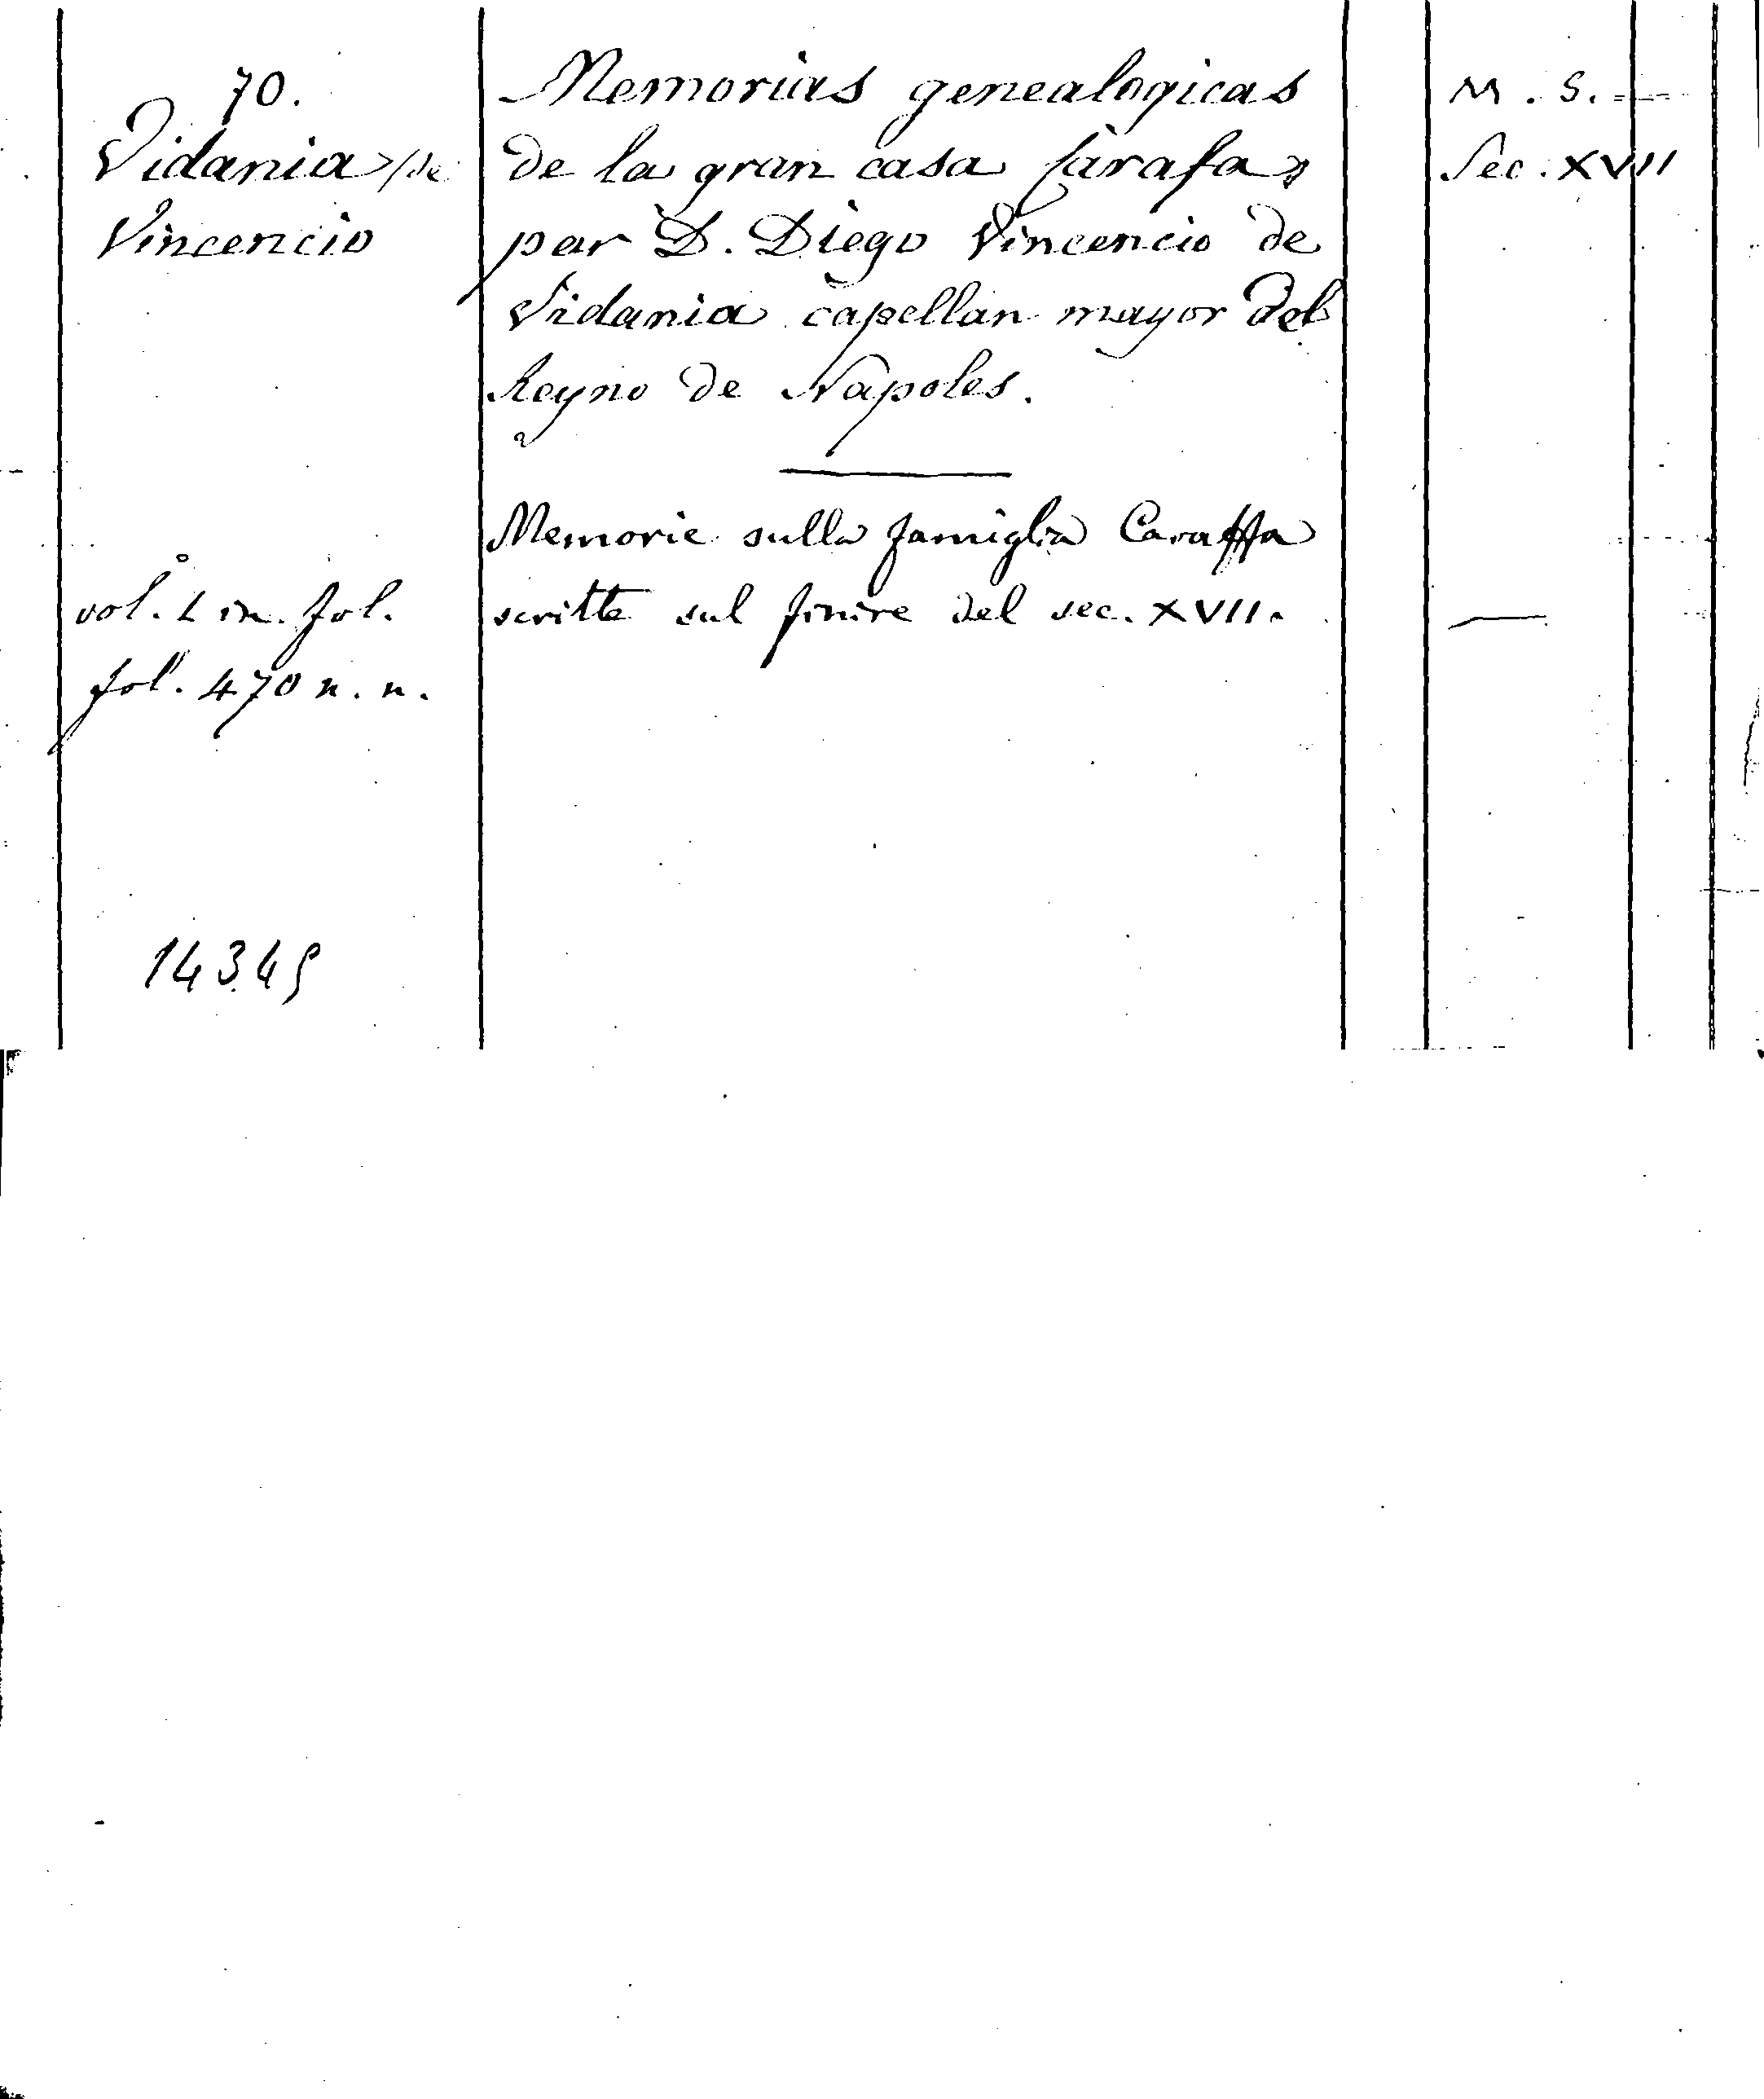 70.
Vidania (de
Vincencio
vol. 1 in fol.
fol. 470 n. n.
14345
Memorias genealogicas
de la gran casa Carafa
par D. Diego Vincencio de
Vidania capellan mayor del
Reyno de Napoles.
Memorie sulla famiglia Caraffa
scritte sul finire del sec. XVII.
M. S.
Sec. XVII